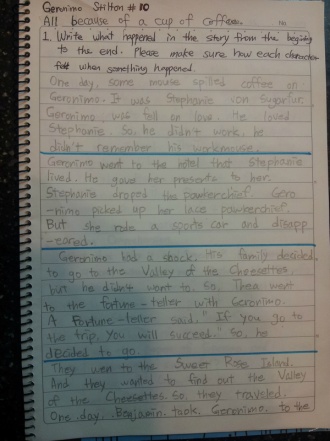 Geronimo Stilton #10
All because of a cup of coffee.
1. Write what happened in the story from the begining
to the end. Please make sure how each character
felt when something happened.
One day, some mouse spilled coffee on
Geronimo. It was Stephanie von Sugarfur.
Geronimo was fall on love. He loved
Stephanie. So, he didn't work, he
didn't remember his workmouse.
Geronimo went to the hotel that Stephanie
lived. He gave her presents to her.
Stephanie droped the pawkerchief. Gero
-nimo picked up her lace pawkerchief.
But she rode a sports car and disapp
-eared.
Geronimo had a shock. His family decided
to go to the Valley of the Cheesettes,
but he didn't want to. So, Thea went
to the fortune-teller with Geronimo.
A fortune-teller said, "If you go to
the trip, you will succeed." So, he
decided to go.
They went to the Sweet Rose Island.
And they wanted to find out the Valley
of the Cheesettes. So, they traveled.
One day, Benjamin took Geronimo to the